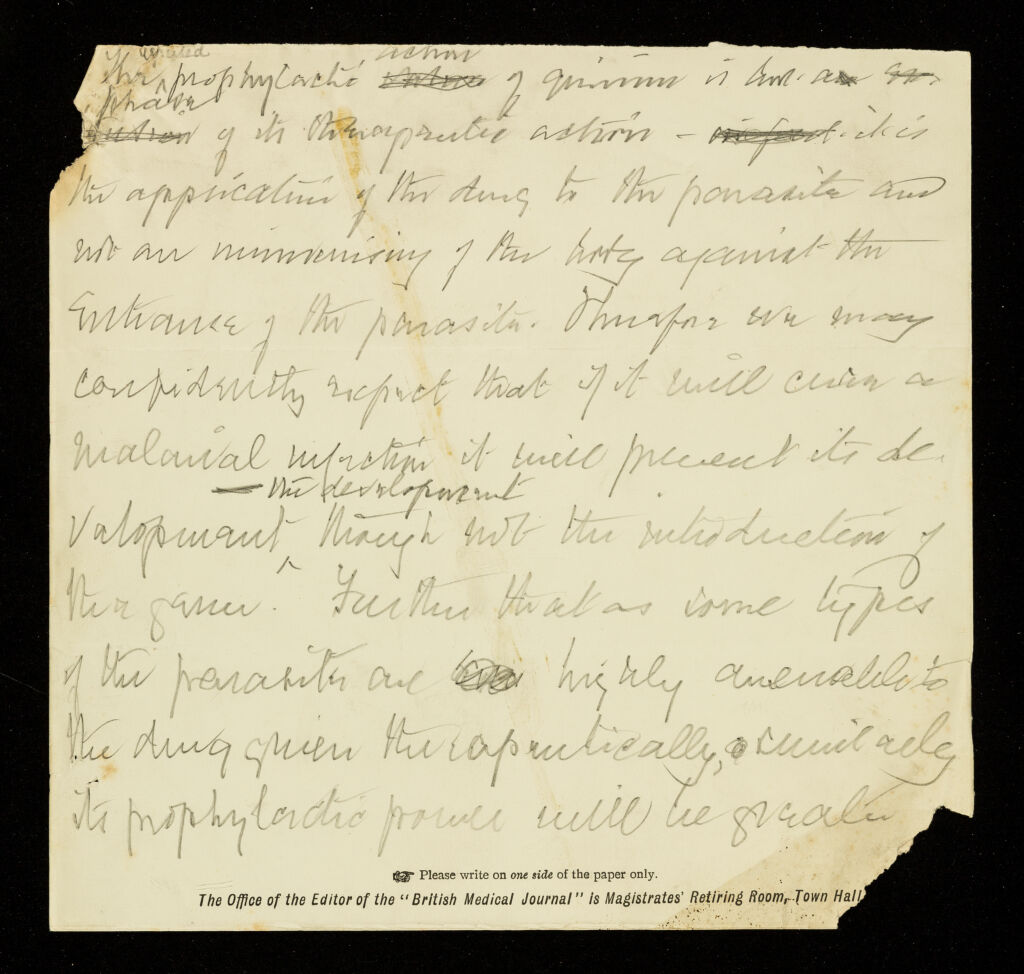 the prophylactic action of quinine is but a
phase of its therapeutic action - in fact it is
the application of the drug to the parasite and
not an immunising of the body against the
Entrance of the parasite. Therefore we may
confidently expect that if it will cure a
malarial infection it will prevent its de-
- the development
velopment, though not the introduction of
the germ. Further that as some types
of the parasite are highly amenable to
the drug given therapeutically, similarly
its prophylactic power will be greater
Please write on one side of the paper only.
The Office of the Editor of the "British Medical Journal" is Magistrates' Retiring Room, Town Hall